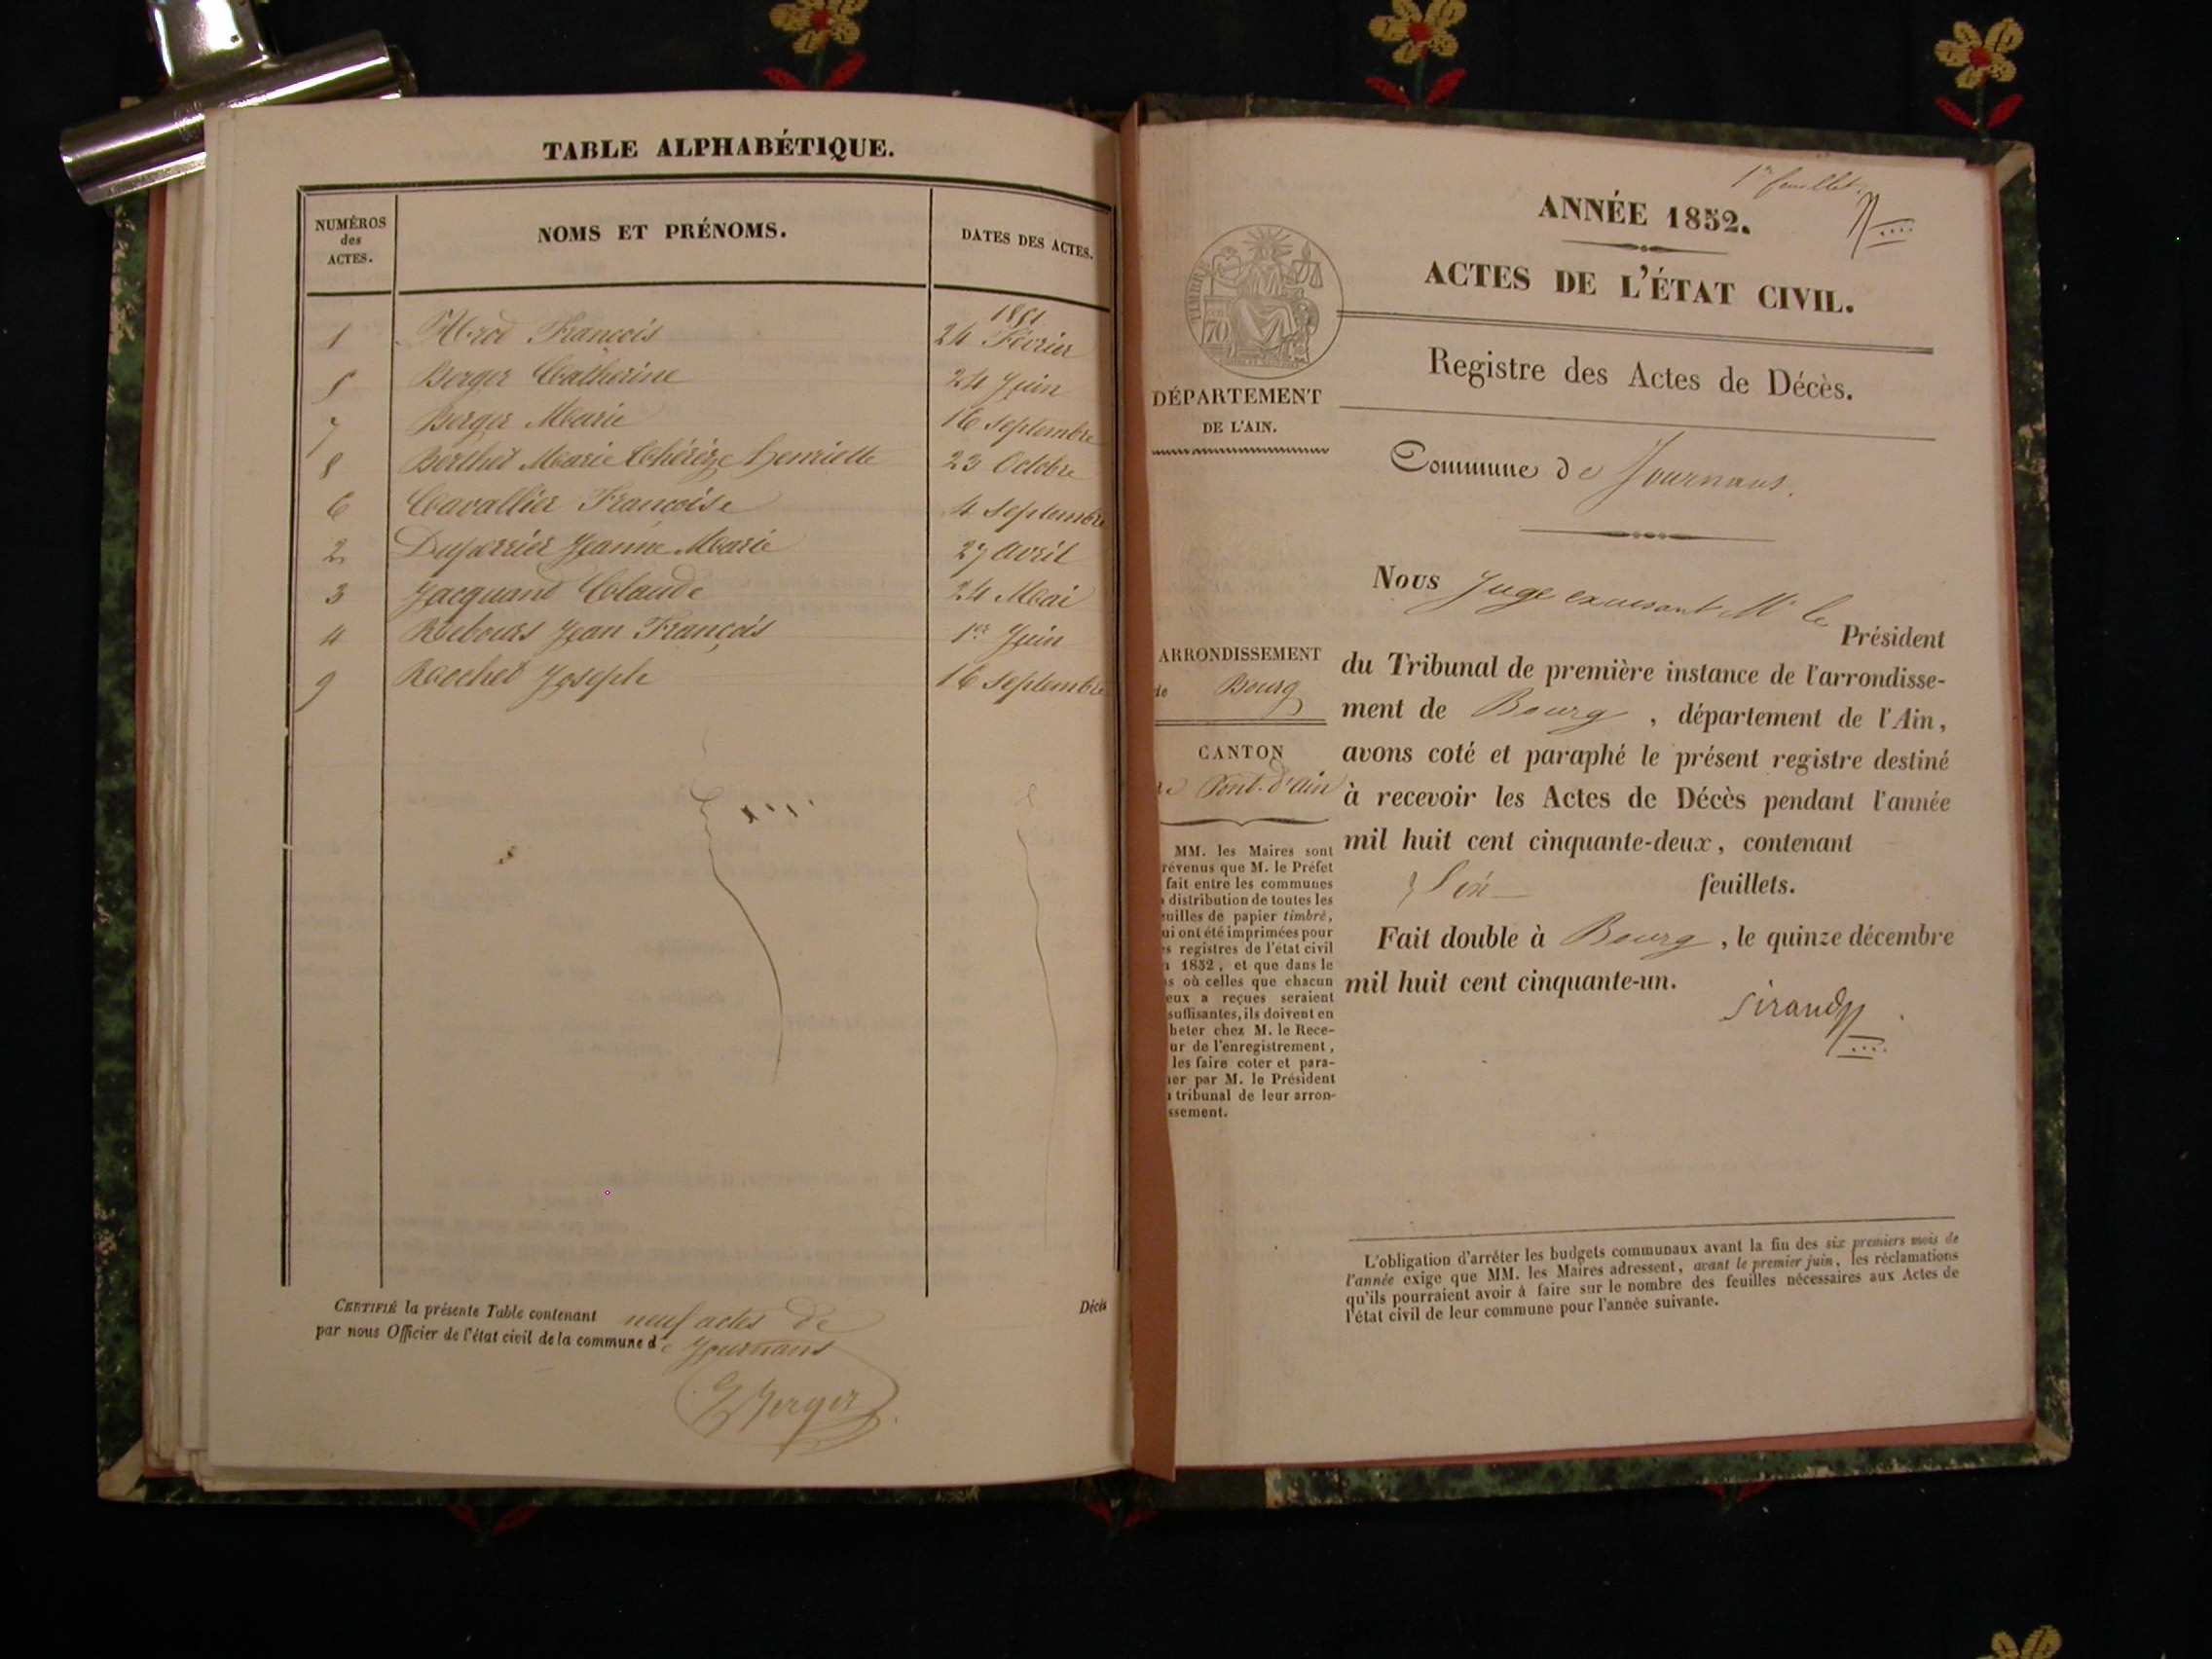 TABLE ALPHABÉTIQUE.
NUMÉROS
des
ACTES.
NOMS ET PRÉNOMS.
DATES DES ACTES.
1851
1 François 24 Février
5 Berger Catherine 24 Juin
7 Berger Marie 16 Septembre
8 Berthet Marie Thérèze henriette 23 Octobre
6 Cavallier Françoise 4 Septembre
2 Duperrier Jeanne Marie 27 avril
3 Jacquand Claude 24 Mai
4 Rebours Jean François 1er Juin
9 Rochet Joseph 16 Septembre
CERTIFIÉ la présente Table contenant neuf actes de Décès
par nous Officier de l'état civil de la commune de Journans
Berger
1er feuillet.
ANNÉE 1852.
ACTES DE L'ÉTAT CIVIL.
Registre des Actes de Décès.
TIMBRE
70
DÉPARTEMENT
DE L'AIN.
ARRONDISSEMENT
de Bourg
CANTON
de Pont-d'ain
MM. les Maires sont
révenus que M. le Préfet
fait entre les communes
distribution de toutes les
uilles de papier timbré,
ui ont été imprimées pour
es registres de l'état civil
1852, et que dans le
s où celles que chacun
eux a reçues seraient
suffisantes, ils doivent en
heter chez M. le Rece-
ur de l'enregistrement,
les faire coter et para-
her par M. le Président
tribunal de leur arron-
ssement.
Commune de Journans.
Nous Juge excusant Mr le
Président
du Tribunal de première instance de l'arrondisse-
ment de Bourg, département de l'Ain,
avons coté et paraphé le présent registre destiné
à recevoir les Actes de Décès pendant l'année
mil huit cent cinquante-deux, contenant
feuillets.
Fait double à Bourg, le quinze décembre
mil huit cent cinquante-un.
Sirand
L'obligation d'arrêter les budgets communaux avant la fin des six premiers mois de
l'année exige que MM. les Maires adressent, avant le premier juin, les réclamations
qu'ils pourraient avoir à faire sur le nombre des feuilles nécessaires aux Actes de
l'état civil de leur commune pour l'année suivante.